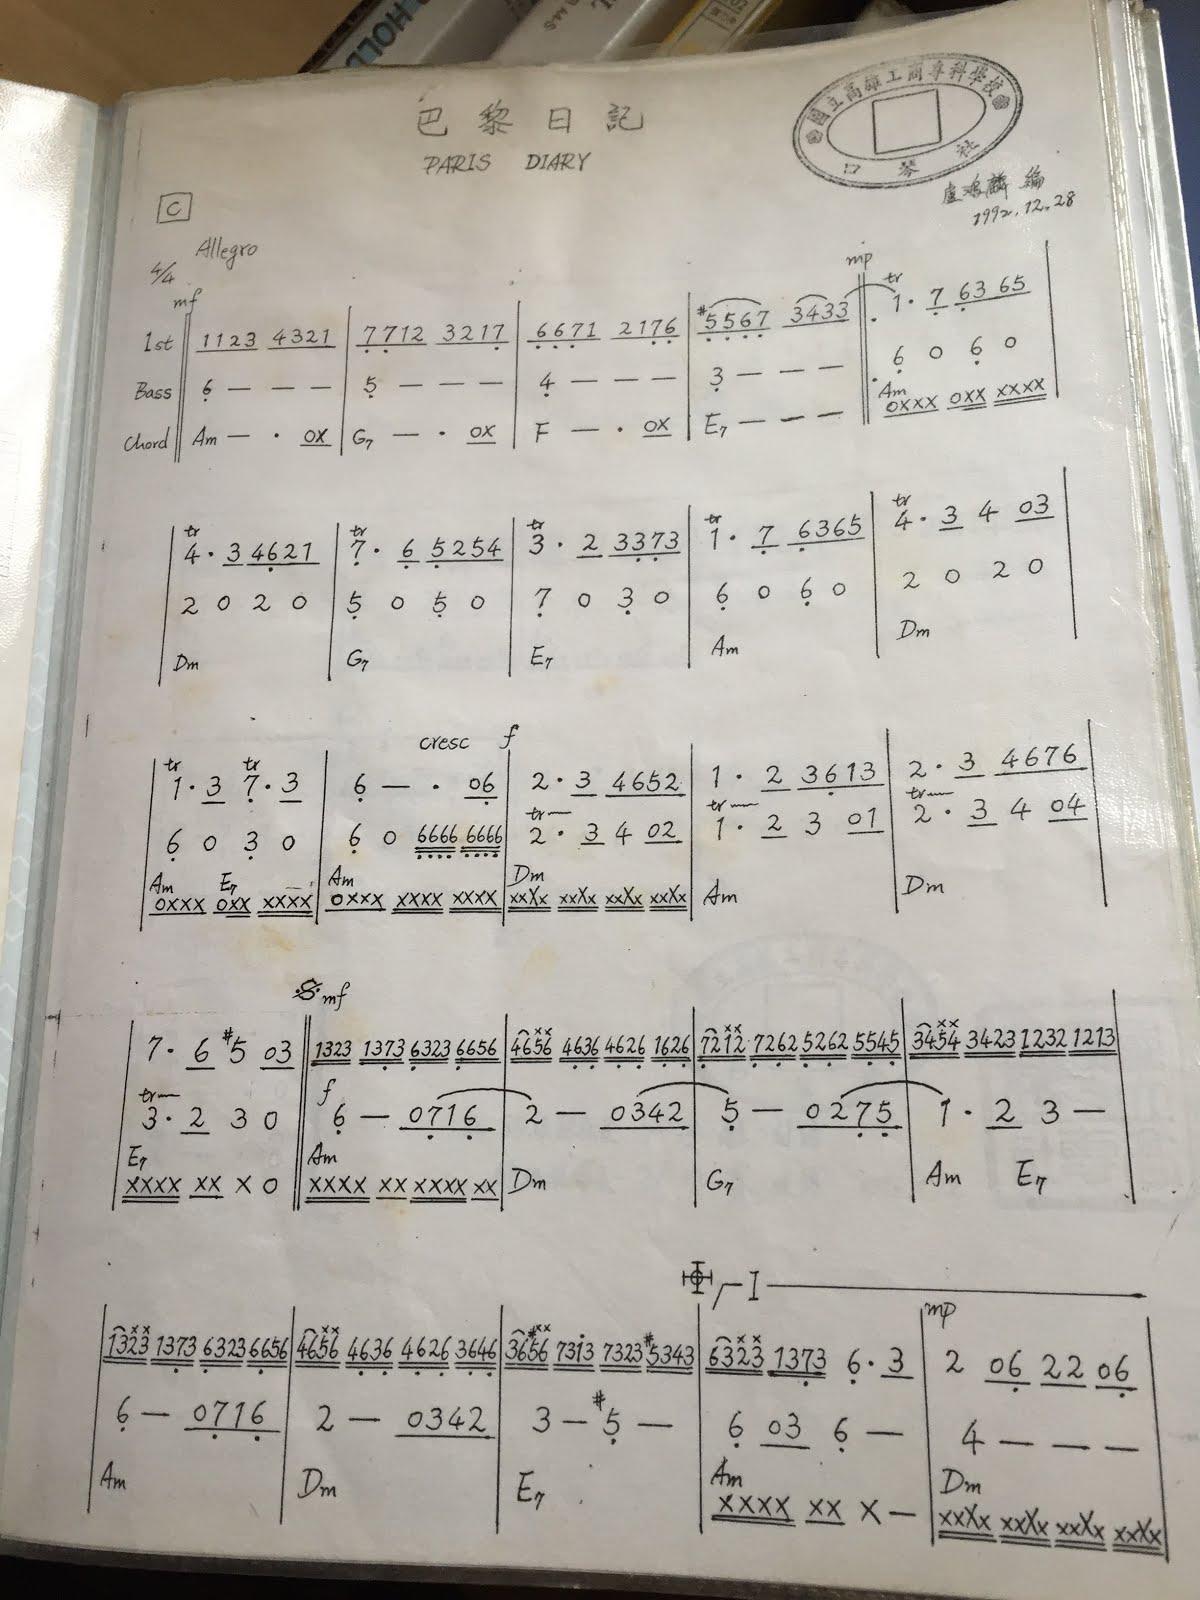 HOLL
巴黎日記
PARIS DIARY
國立高雄工商專科學校
口琴社
編
1992.12.28
C
Allegro
4/4
mf
mp
tr
1st 1123 4321 7712 3217 6671 2176 #5567 3433 1· 7 63 65
Bass 6 — — — 5 — — — 4 — — — 3 — — — 6 0 6 0
Chord Am — · 0X G7 — · 0X F — · 0X E7 — — — Am 0XXX 0XX XXXX
tr tr tr tr tr
4· 3 4621 7· 6 5254 3· 2 3373 1· 7 6365 4· 3 4 03
2 0 2 0 5 0 5 0 7 0 3 0 6 0 6 0 2 0 2 0
Dm G7 E7 Am Dm
cresc f
tr tr
1· 3 7· 3 6 — · 06 2· 3 4652 1· 2 3613 2· 3 4676
tr tr tr
6 0 3 0 6 0 6666 6666 2· 3 4 02 1· 2 3 01 2· 3 4 04
Am E7 Am Dm Am Dm
0XXX 0XX XXXX 0XXX XXXX XXXX xxXx xxXx xxXx xxXx
mf
7· 6 #5 03 1323 1373 6323 6656 4656 4636 4626 1626 7212 7262 5262 5545 3454 3423 1232 1213
tr f
3· 2 3 0 6 — 0716 2 — 0342 5 — 0275 1· 2 3 —
E7 Am Dm G7 Am E7
XXXX XX X 0 XXXX XX XXXX XX
I
mp
1323 1373 6323 6656 4656 4636 4626 3646 3656 7313 7323 #5343 6323 1373 6· 3 2 06 22 06
6 — 0716 2 — 0342 3 — #5 — 6 03 6 — 4 — — —
Am Dm E7 Am Dm
XXXX XX X — xxXx xxXx xxXx xxXx